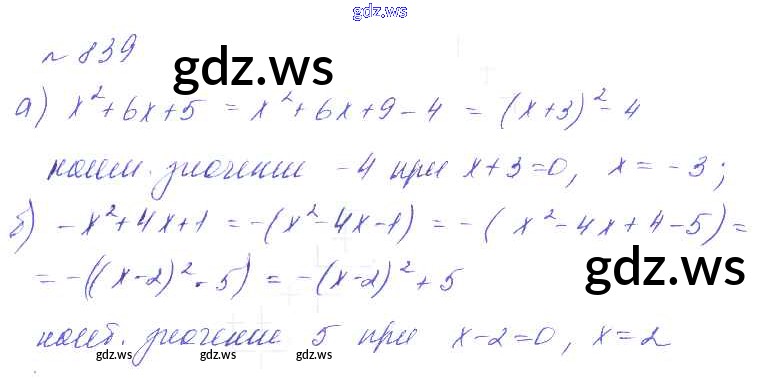 gdz.ws
№ 839
gdz.ws
а) x² + 6x + 5 = x² + 6x + 9 - 4 = (x+3)² - 4
наим. значение -4 при x+3=0, x = -3;
б) -x² + 4x + 1 = -(x² - 4x - 1) = -(x² - 4x + 4 - 5) =
= -((x-2)² - 5) = -(x-2)² + 5
gdz.ws
наиб. значение 5 при x-2=0, x=2
gdz.ws gdz.ws gdz.ws gdz.ws